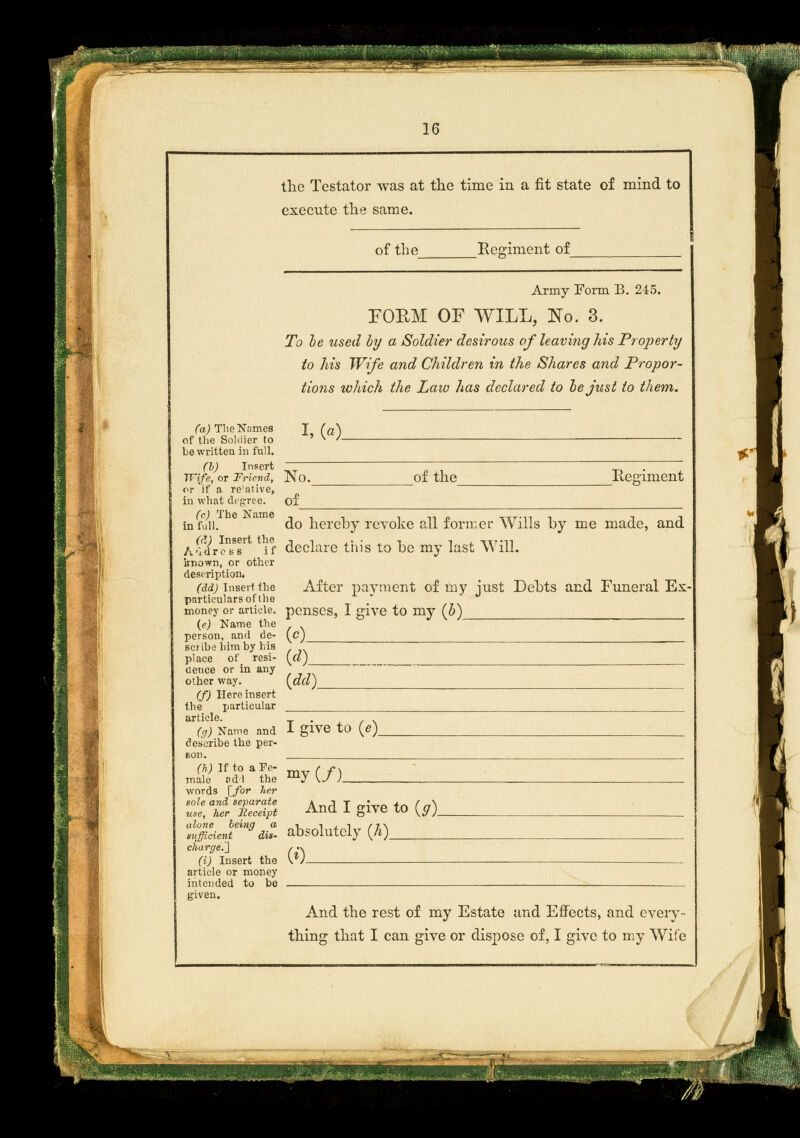 16
the Testator was at the time in a fit state of mind to
execute the same.
of the Regiment of
Army Form B. 245.
FORM OF WILL, No. 3.
To be used by a Soldier desirous of leaving his Property
to his Wife and Children in the Shares and Propor-
tions which the Law has declared to be just to them.
(a) The Names
of the Soldier to
be written in full.
(b) Insert
Wife, or Friend,
or if a relative,
in what degree.
(c) The Name
in full.
(d) Insert the
Address if
known, or other
description.
(dd) Insert the
particulars of the
money or article.
(e) Name the
person, and de-
scribe him by his
place of resi-
dence or in any
other way.
(f) Here insert
the particular
article.
(g) Name and
describe the per-
son.
(h) If to a Fe-
male add the
words [for her
sole and separate
use, her Receipt
alone being a
sufficient dis-
charge.]
(i) Insert the
article or money
intended to be
given.
I, (a)
No. of the Regiment
of
do hereby revoke all former Wills by me made, and
declare this to be my last Will.
After payment of my just Debts and Funeral Ex-
penses, I give to my (b)
(c)
(d)
(dd)
I give to (e)
my (f)
And I give to (g)
absolutely (h)
(i)
And the rest of my Estate and Effects, and every-
thing that I can give or dispose of, I give to my Wife